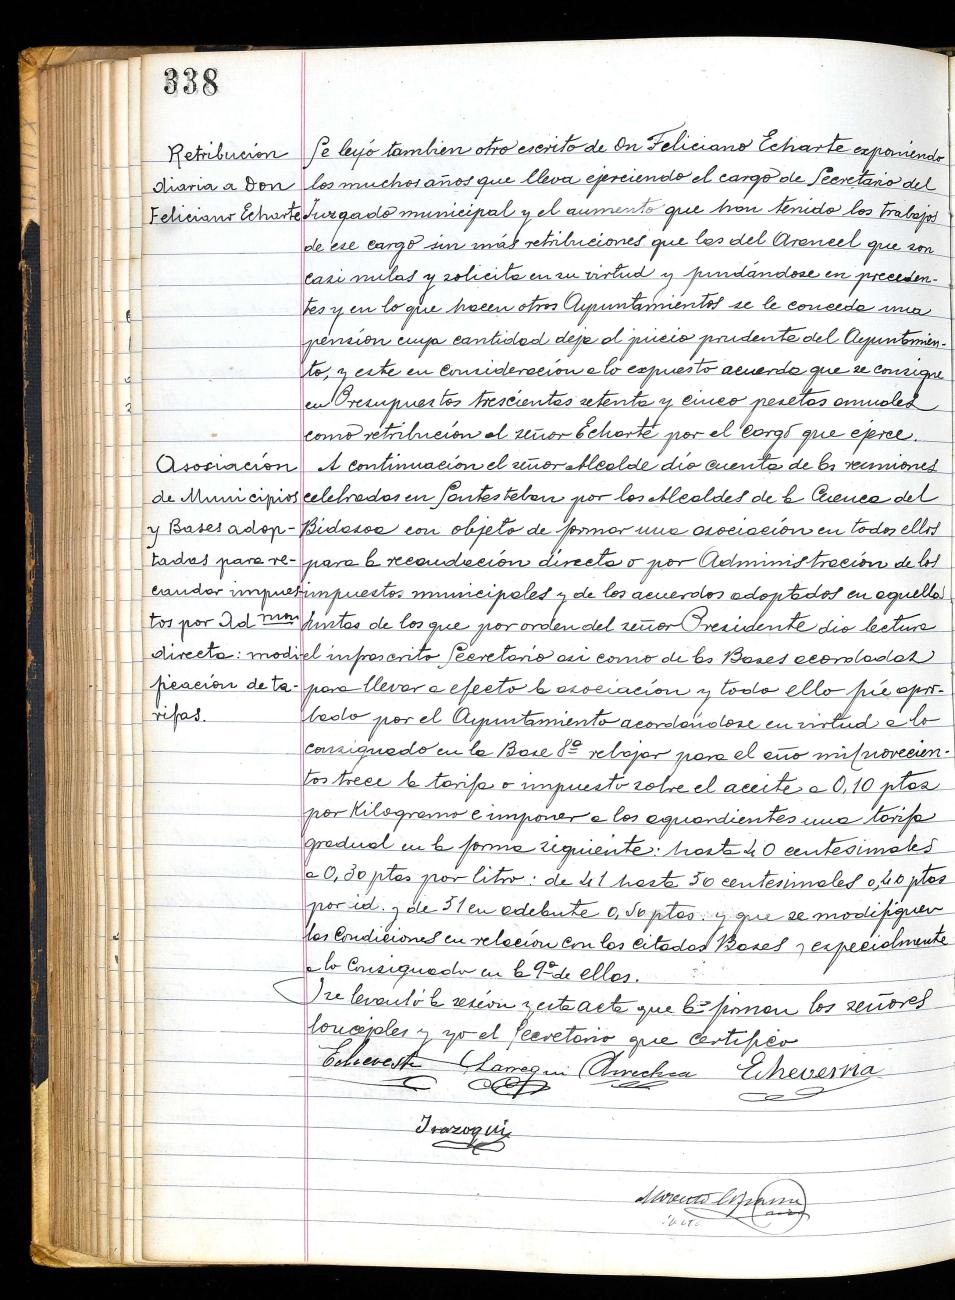 338
Retribución
diaria a Don
Feliciano Echarte
Se leyó tambien otro escrito de Dn Feliciano Echarte exponiendo
los muchos años que lleva ejerciendo el cargo de Secretario del
Juzgado municipal y el aumento que han tenido los trabajos
de ese cargo sin más retribuciones que las del Arancel que son
casi nulas y solicita en su virtud y fundándose en preceden-
tes y en lo que hacen otros Ayuntamientos se le conceda una
pensión cuya cantidad deja al juicio prudente del Ayuntamien-
to, y este en consideración a lo expuesto acuerda que se consigne
en Presupuestos trescientas setenta y cinco pesetas anuales
como retribución al señor Echarte por el cargo que ejerce.
Asociación
de Municipios
y Bases adop-
tadas para re-
caudar impues-
tos por Admon
directa: modi-
ficación de ta-
rifas.
A continuación el señor Alcalde dio cuenta de las reuniones
celebradas en Santesteban por los Alcaldes de la Cuenca del
Bidasoa con objeto de formar una asociación en todos ellos
para la recaudación directa o por Administración de los
impuestos municipales y de los acuerdos adoptados en aquellas
Juntas de los que por orden del señor Presidente dio lectura
el infrascrito Secretario asi como de las Bases acordadas
para llevar a efecto la asociación y todo ello fué apro-
bado por el Ayuntamiento acordándose en virtud a lo
consignado en la Base 8ª rebajar para el año mil novecien-
tos trece la tarifa o impuesto sobre el aceite a 0,10 ptas
por Kilogramo e imponer a los aguardientes una tarifa
gradual en la forma siguiente: hasta 40 centesimales
a 0,30 ptas por litro: de 41 hasta 50 centesimales 0,40 ptas
por id. y de 51 en adelante 0,50 ptas. y que se modifiquen
las Condiciones en relación con las citadas Bases y especialmente
a lo consignado en la 9ª de ellas.
Y se levantó la sesión y esta acta que la firman los señores
Concejales y yo el Secretario que certifico
Echeveste Larregui Arrechea Echeverria
Irazoqui